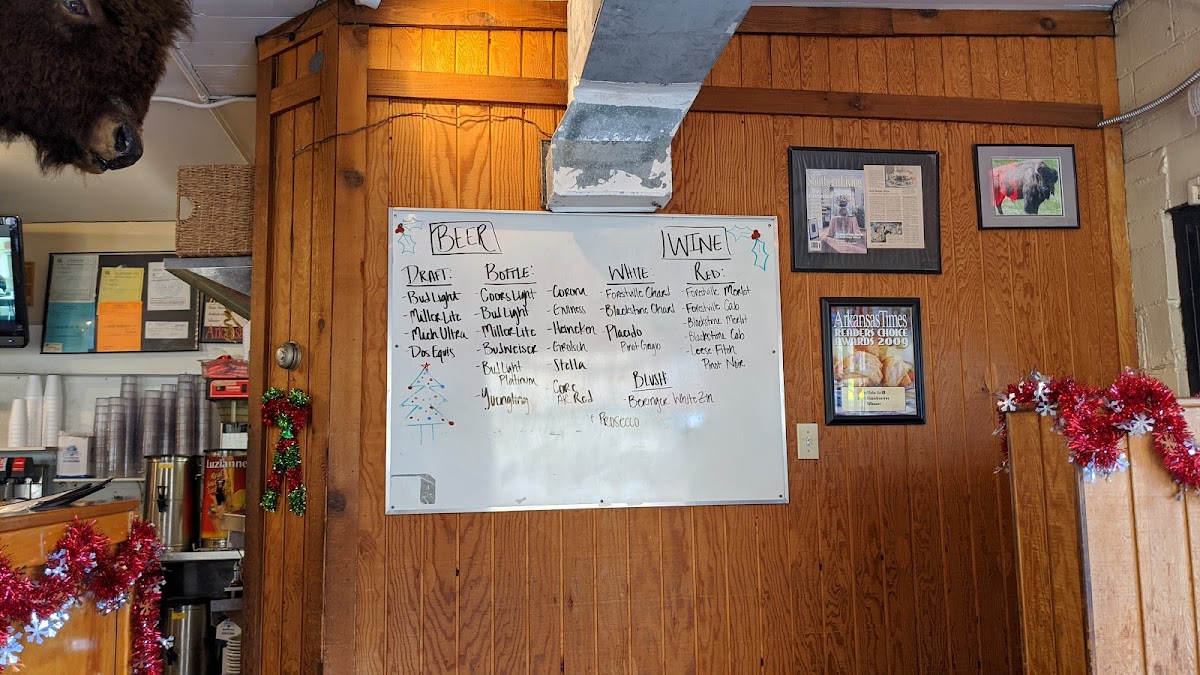 BEER
WINE
DRAFT:
- Bud Light
- Miller Lite
- Mich Ultra
- Dos Equis
BOTTLE:
- Coors Light
- Bud Light
- Miller Lite
- Budweiser
- Bud Light
Platinum
- Yuengling
- Corona
- Guinness
- Heineken
- Grolsch
- Stella
- Core
AR Red
WHITE:
- Forestville Chard
- Blackstone Chard
- Placido
Pinot Grigio
RED:
- Forestville Merlot
- Forestville Cab
- Blackstone Merlot
- Blackstone Cab
- Leese Fitch
Pinot Noir
BLUSH
- Beringer White Zin
PROSECCO
Southern Living
Arkansas Times
READERS CHOICE
AWARDS 2009
Winner
Luzianne